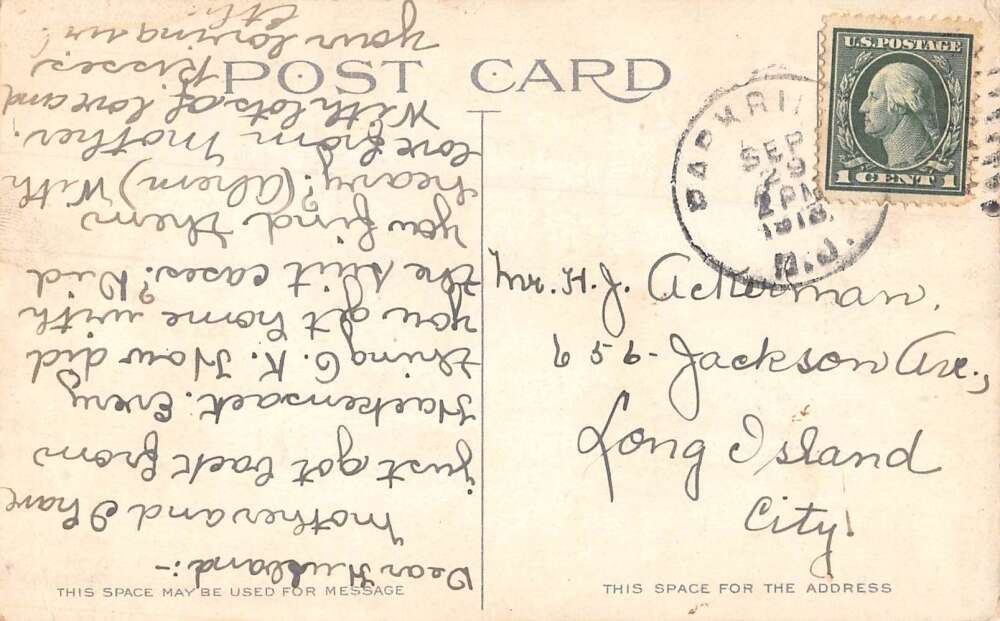 POST CARD
U.S. POSTAGE
1 CENT 1
SEP
29
2 PM
1913
N.J.
Mr. H. J. Ackerman,
656- Jackson Ave.,
Long Island
City.
THIS SPACE FOR THE ADDRESS
THIS SPACE MAY BE USED FOR MESSAGE
Dear Husband:-
Mother and I have
just got back from
Hackensack. Every
thing O. K. How did
you get home with
the suit cases? Did
you find them
heavy? (Ahem) With
love from Mother.
With lots of love and
kisses
your loving